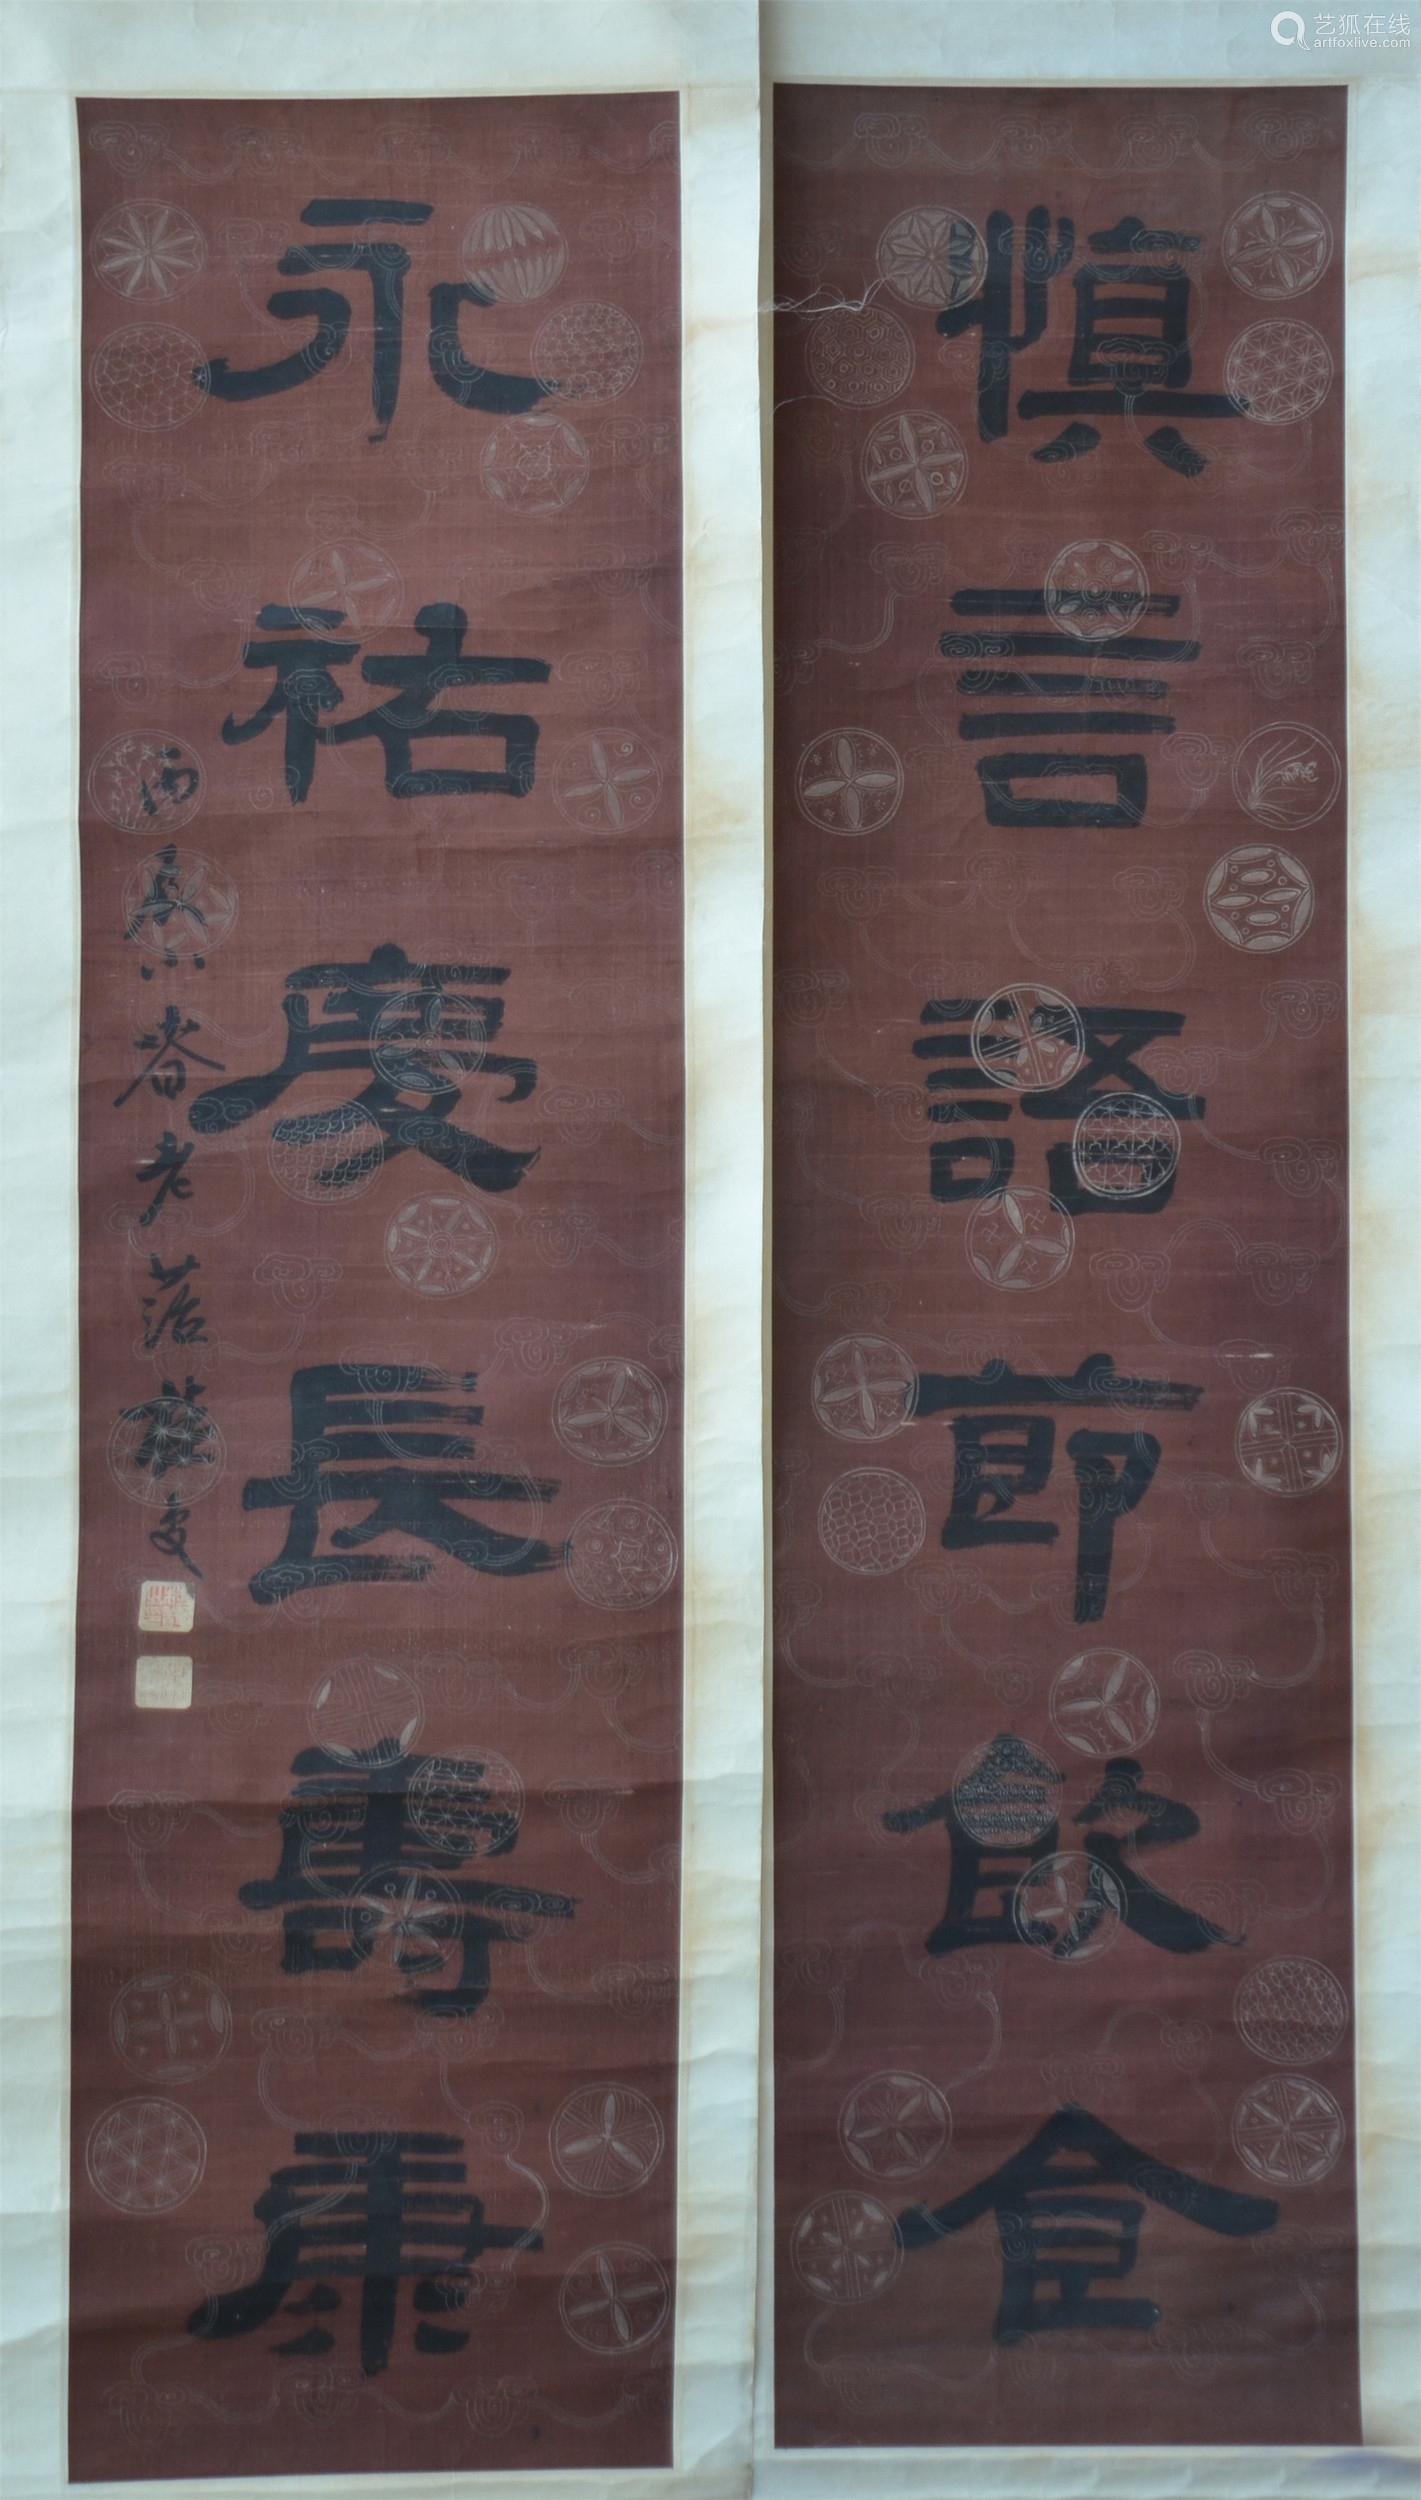 慎言語節飲食
永祐慶長壽康
丙辰小春老落桂馥
艺狐在线
artfoxlive.com